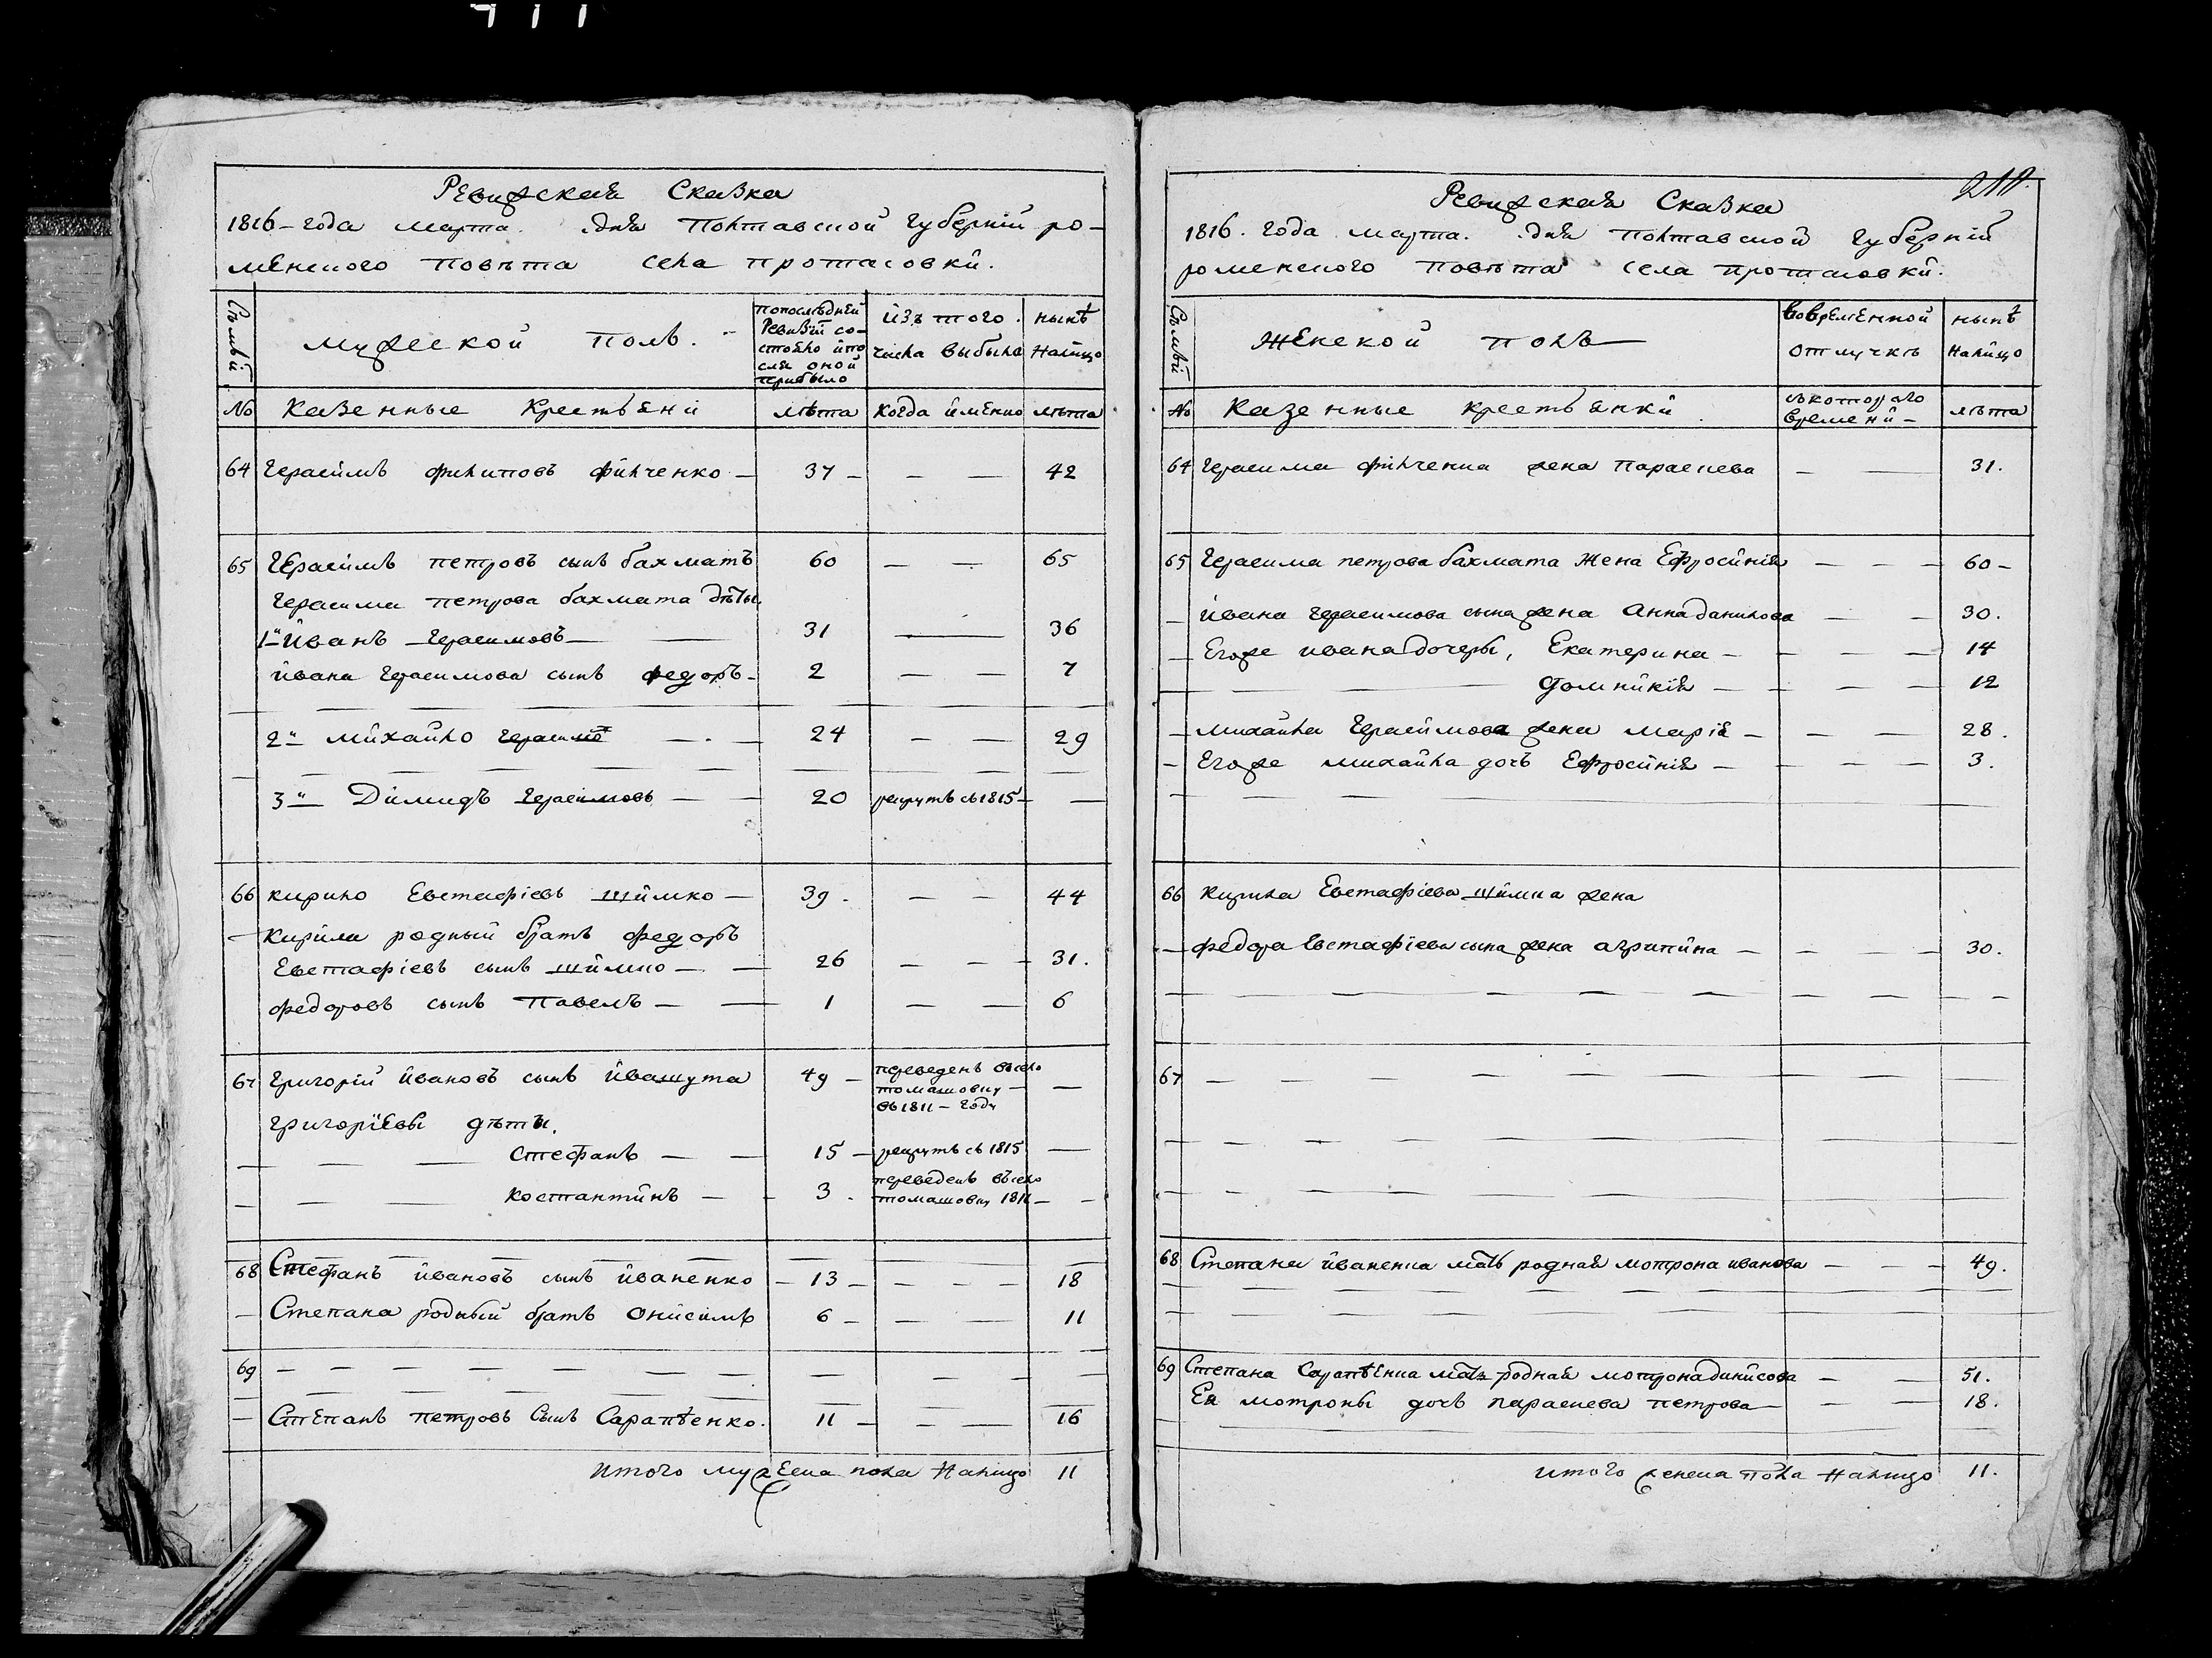 Ревизская Сказка
1816-года марта. дня Полтавской губерній ро-
менского повѣта села протасовки.
Съмьи
мужеской полъ.
попослѣдней Ревизіи со-стояло ипо сля оной прибыло
изъ того числа выбыло
нынѣ налицо
№ Казенные Крестьяни лѣта когда именно лѣта
64 Герасимъ филиповъ филченко — 37 — — — 42
65 Герасимъ петровъ сынъ бахматъ 60 — — 65
Герасима петрова бахмата дѣты.
1й Иванъ — Герасимовъ — 31 — 36
Ивана Герасимова сынъ федоръ — 2 — — 7
2й Михайло Герасимо — 24 — — 29
3й Димидъ Герасимовъ — 20 рекрутъ съ 1815 —
66 Кирило Евстафіевъ шимко — 39. — — 44
— Кирила родный братъ федоръ
Евстафіевъ сынъ шимко — 26 — — 31.
федоровъ сынъ Павелъ — 1 — — 6
67 Григорій Ивановъ сынъ Ивашута 49 — переведенъ въсело томашовку — въ 1811 — году —
григоріевы дѣти.
Стефанъ — 15 — рекрутъ съ 1815 —
Костантинъ — 3. переведенъ въсело томашовку 1811 —
68 Стефанъ Ивановъ сынъ Иваненко — 13 — — — 18
— Степана родный братъ Онисимъ 6 — — — 11
69 — — — — —
— Степанъ петровъ Сынъ Сарапѣенко. 11 — — — 16
итого мужеска пола Налицо 11
211.
Ревизская Сказка
1816. года марта. дня Полтавской губерній
роменского повѣта села протасовки.
Съмьи
Женской полъ
вовременной отлучкѣ
нынѣ налицо
№ Казенные крестьянки съкоторого времени — лѣта
64 Герасима филченка жена Параскева — — 31.
65 Герасима петрова бахмата Жена Ефросинія — — 60 —
— Ивана Герасимова сына жена Анна данилова — — 30.
— Егоже ивана дочеры, Екатерина — — — 14
— Домникія — — — 12
— михайла Герасимова жена марія — — — 28.
— Егоже михайла дочь Ефросинія — — — 3.
66 Кирила Евстафіева шимка жена
— федора Евстафіева сына жена агрипина — — — 30.
67 — — — — —
68 Степана Иваненка мать родная мотрона иванова — — 49.
69 Степана Сарапѣенка мать родная мотрона динисова — — 51.
Ея мотроны дочь параскева петрова — — — 18.
итого женска пола Налицо 11.